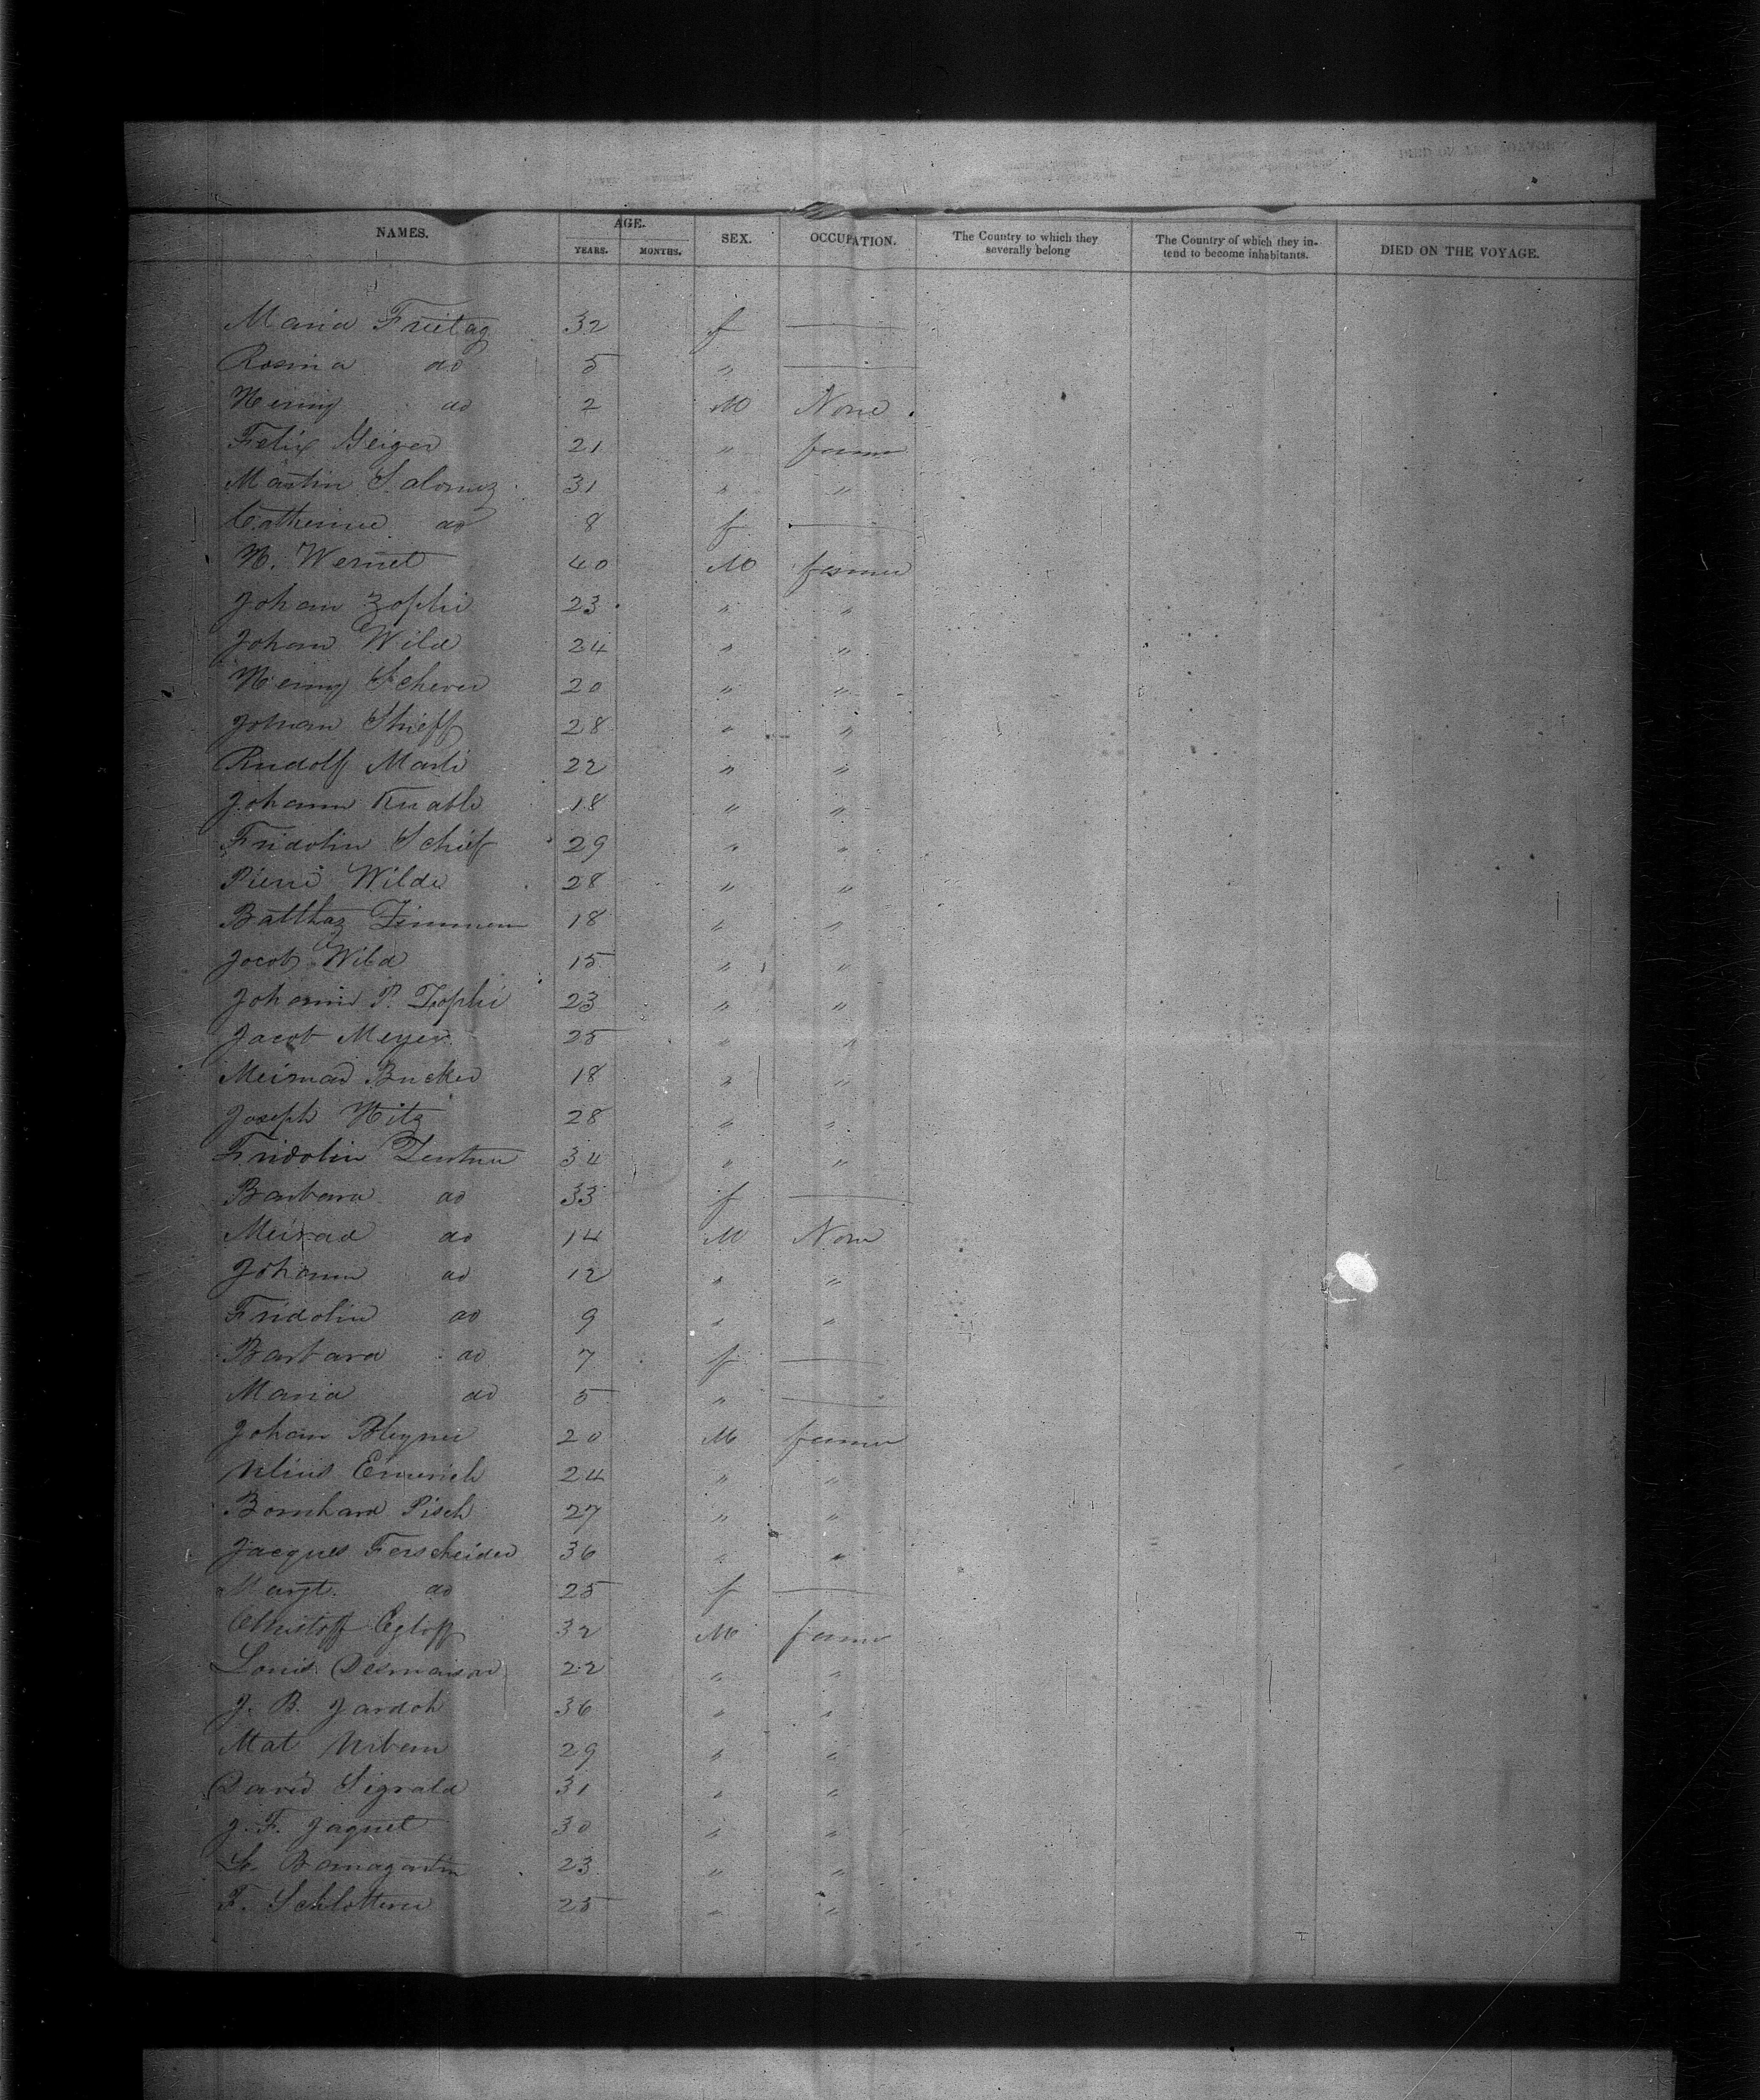 NAMES. AGE. YEARS. MONTHS. SEX. OCCUPATION. The Country to which they severally belong The Country of which they in-tend to become inhabitants. DIED ON THE VOYAGE.
Maria Freitag 32 f —
Rosina do 5 " —
Henry do 2 M None
Felix Geiger 21 " farmer
Martin Salomez 31 " "
Catherine do 8 f —
H. Wernet 40 M farmer
Johan Zophi 23 " "
Johan Wild 24 " "
Henry Scherer 20 " "
Johan Shieff 28 " "
Rudolf Marti 22 " "
Johann Knabli 18 " "
Fridolin Schief 29 " "
Pierre Wilde 28 " "
Balthaz Zimmern 18 " "
Jacob Wild 15 " "
Johann P. Zophi 23 " "
Jacob Meyer 25 " "
Meinrad Bucker 18 " "
Joseph Hitz 28 " "
Fridolin Zentner 34 " "
Barbara do 33 f —
Meirad do 14 M None
Johann do 12 " "
Fridolin do 9 " "
Barbara do 7 f —
Maria do 5 " —
Johan 20 M farmer
Emerich 24 " "
Bernhard Pisch 27 " "
Jacques Ferscheider 36 " "
Margt. do 25 f —
Christoff Egloff 32 M farmer
Louis Desmaison 22 " "
J. B. Jardoh 36 " "
Mat Urben 29 " "
David Sigrald 31 " "
J. F. Jaquet 30 " "
Bomagartin 23 " "
F. Schlotterer 25 " "